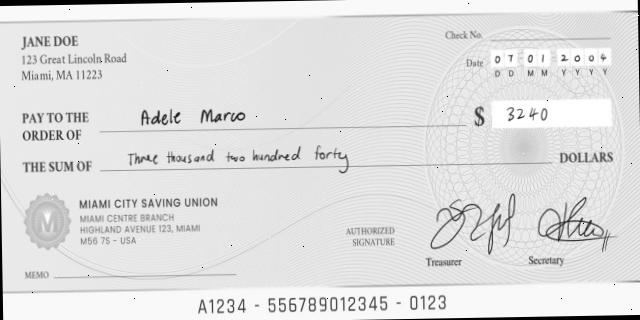 JANE DOE
123 Great Lincoln Road
Miami, MA 11223
Check No.
Date 07 01 2004
D D M M Y Y Y Y
PAY TO THE ORDER OF Adele Marco
$ 3240
THE SUM OF Three thousand two hundred forty DOLLARS
MIAMI CITY SAVING UNION
MIAMI CENTRE BRANCH
HIGHLAND AVENUE 123, MIAMI
M56 7S - USA
M
AUTHORIZED SIGNATURE
Treasurer
Secretary
MEMO
A1234 - 556789012345 - 0123